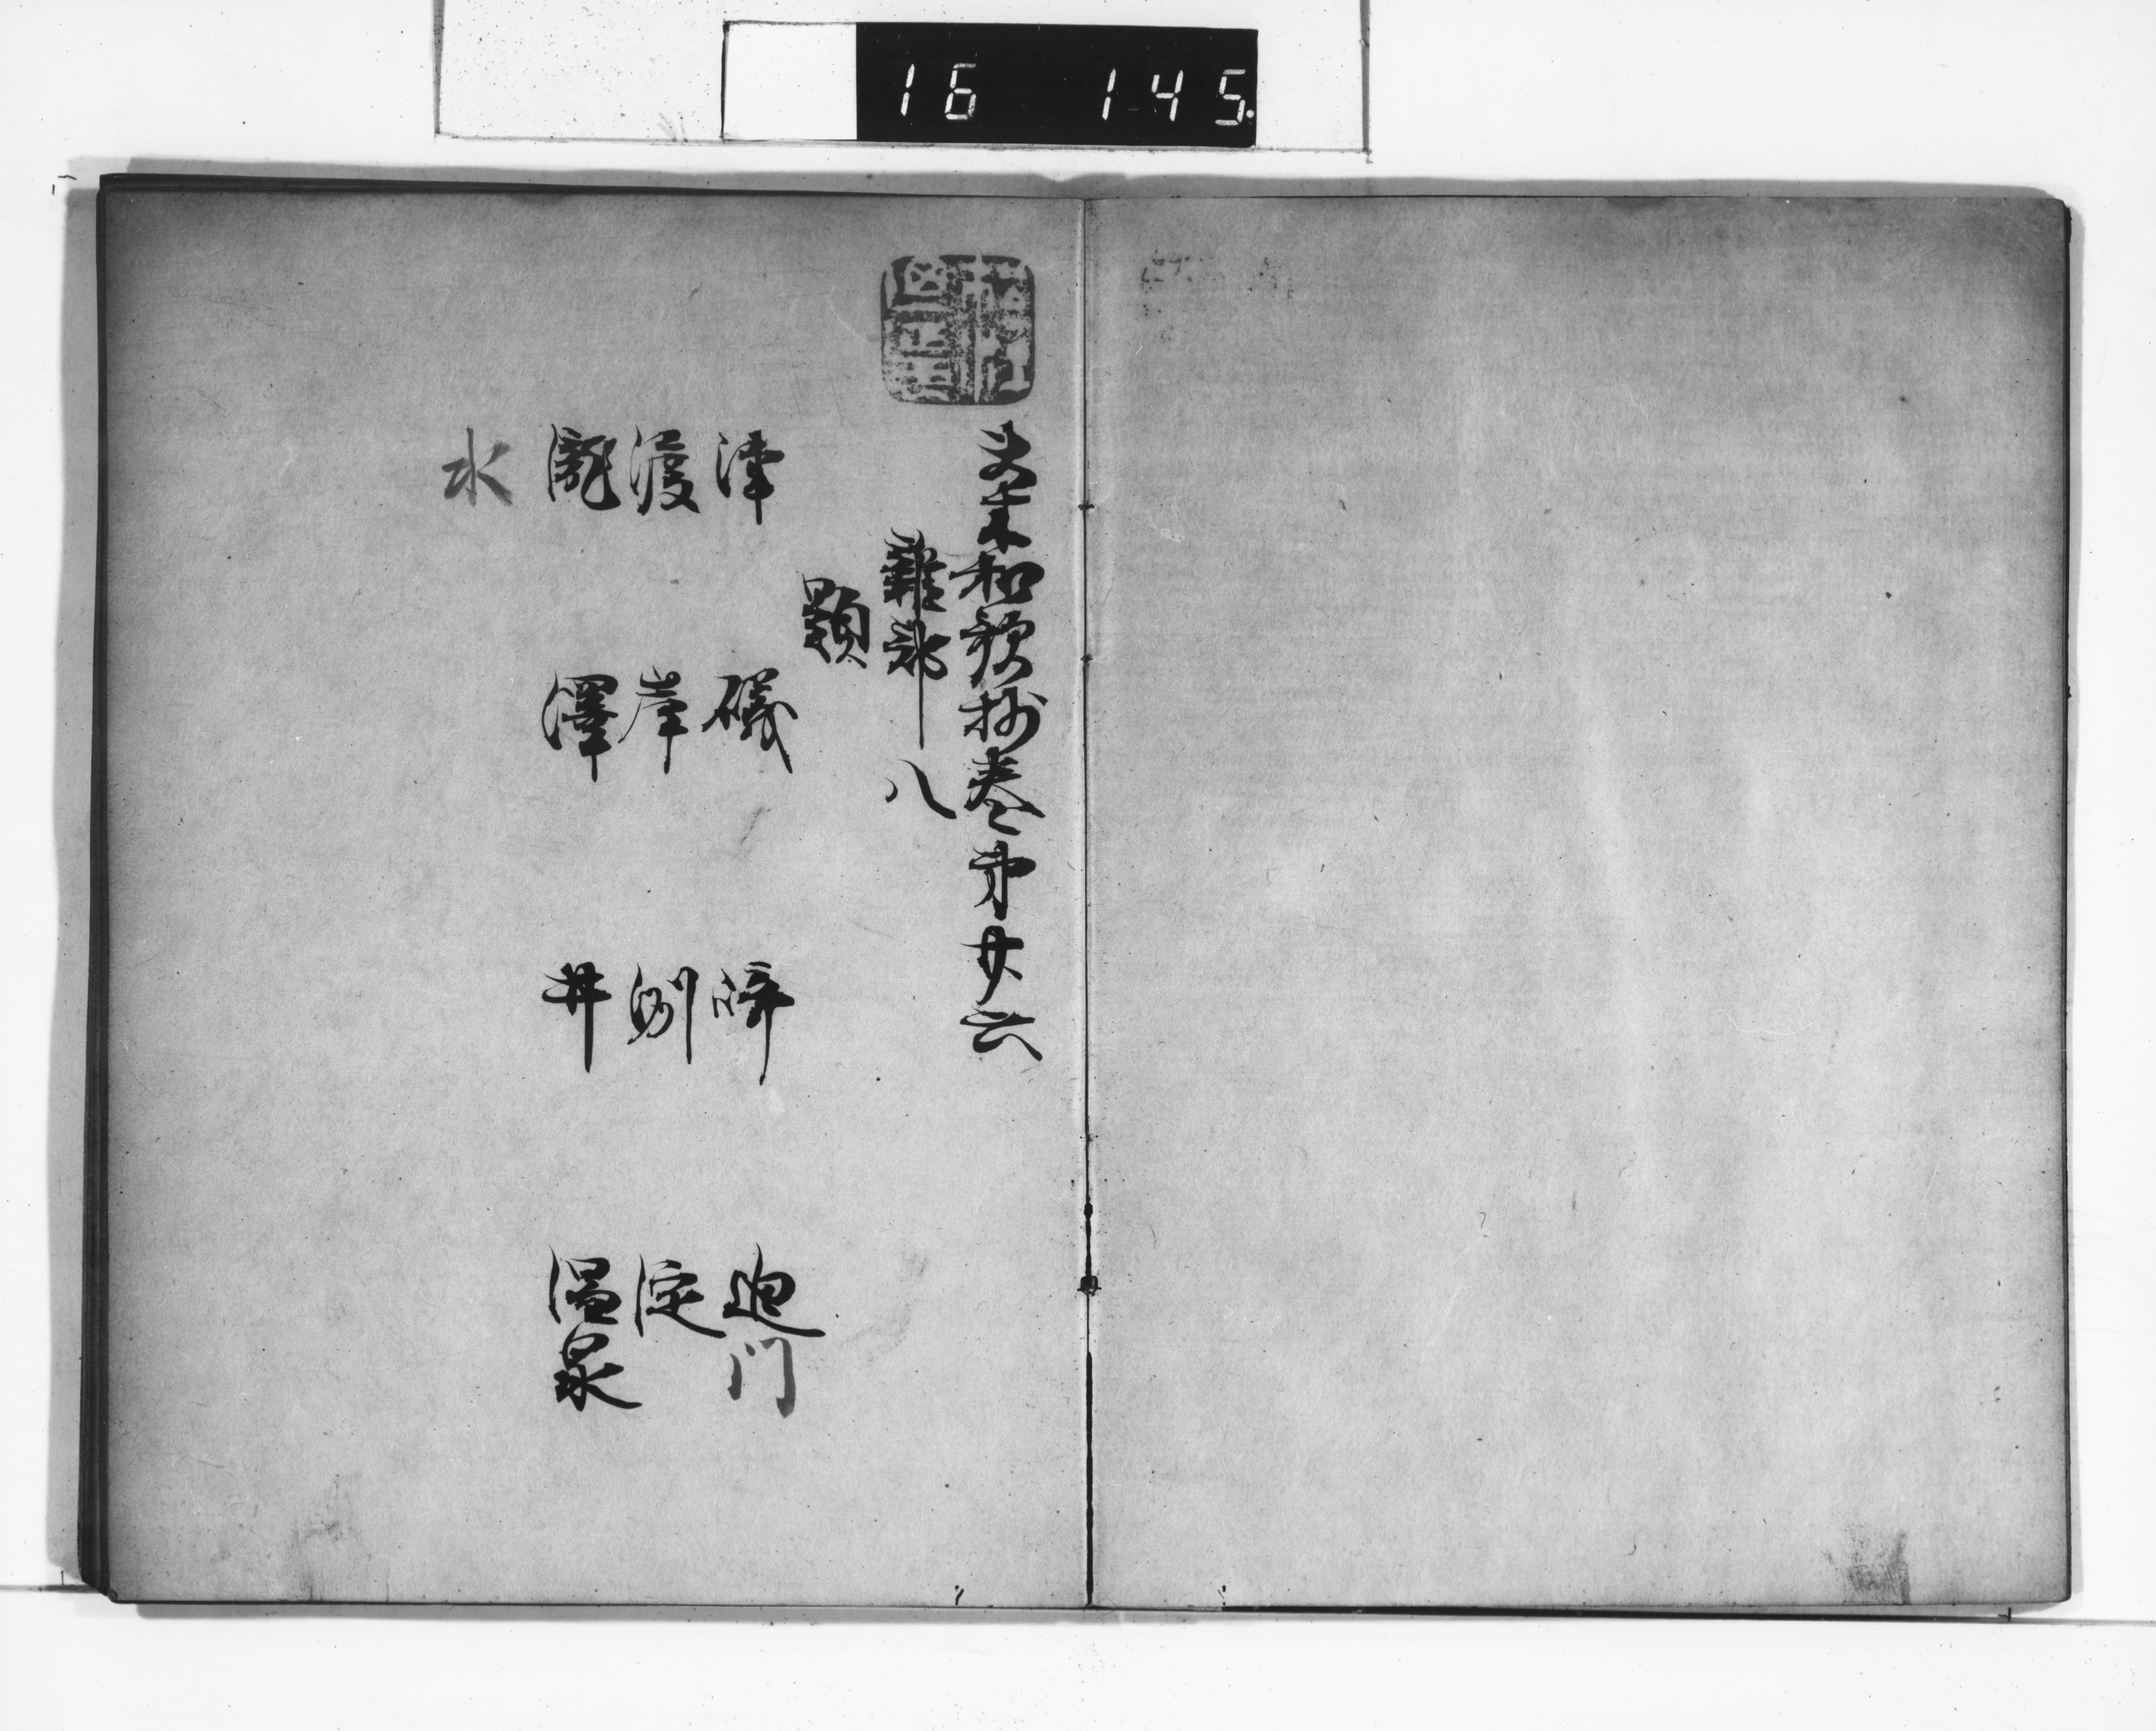 16 145.
夫木和歌抄巻第廿六
雑部八
題
津 礒 崎 迫门
渡 岸 洲 淀
瀧 澤 井 温泉
水